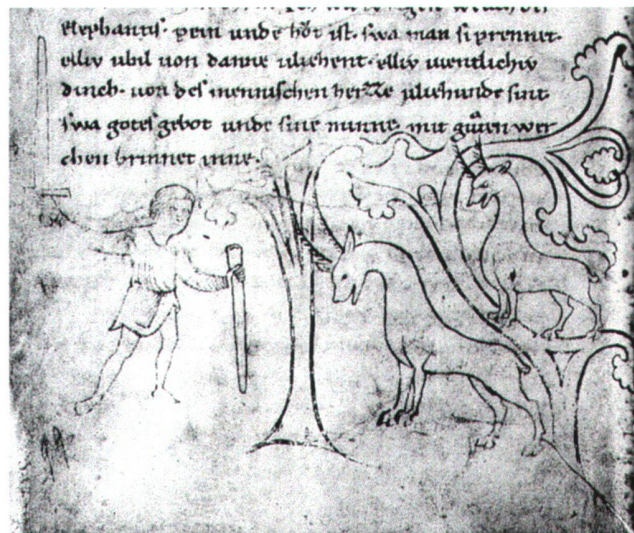 elephantis· pein unde hŏt ist· swa man si prennet·
elliv ubil uon danne uliehent· elliv uientlichiv
dinch· uon des mennischen hertze uliehunde sint
swa gotes gebot unde sine minne· mit gůten wer
chen brinnet inne·